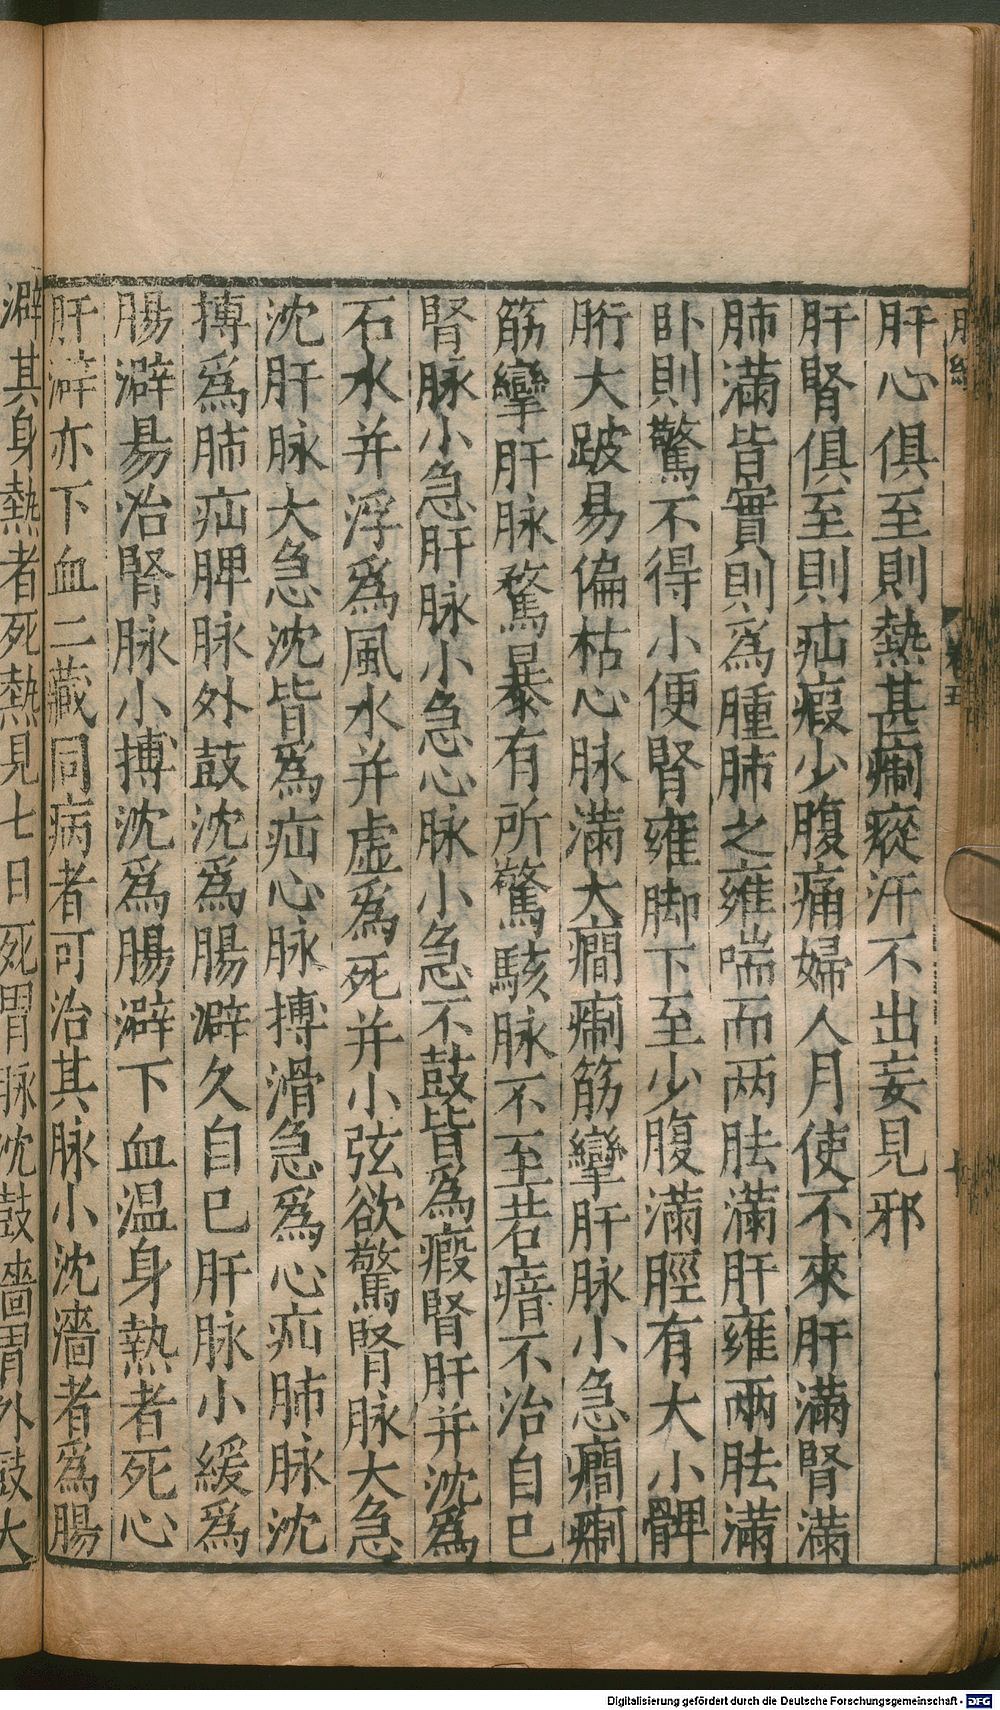 肝心俱至則熱甚瘛瘲汗不出妄見邪
肝腎俱至則疝瘕少腹痛婦人月使不來肝滿腎滿
肺滿皆實則爲腫肺之雍喘而两胠滿肝雍兩胠滿
卧則驚不得小便腎雍脚下至少腹滿脛有大小髀
胻大跛易偏枯心脉滿大癎瘛筋攣肝脉小急癎瘛
筋攣肝脉驁暴有所驚駭脉不至若瘖不治自已
腎脉小急肝脉小急心脉小急不鼓皆爲瘕腎肝并沈爲
石水并浮爲風水并虛爲死并小弦欲驚腎脉大急
沈肝脉大急沈皆爲疝心脉搏滑急爲心疝肺脉沈
搏爲肺疝脾脉外鼓沈爲腸澼久自已肝脉小緩爲
腸澼易治腎脉小搏沈爲腸澼下血温身熱者死心
肝澼亦下血二藏同病者可治其脉小沈濇者爲腸
澼其身熱者死熱見七日死胃脉沈鼓濇胃外鼓大
Digitalisierung gefördert durch die Deutsche Forschungsgemeinschaft - DFG